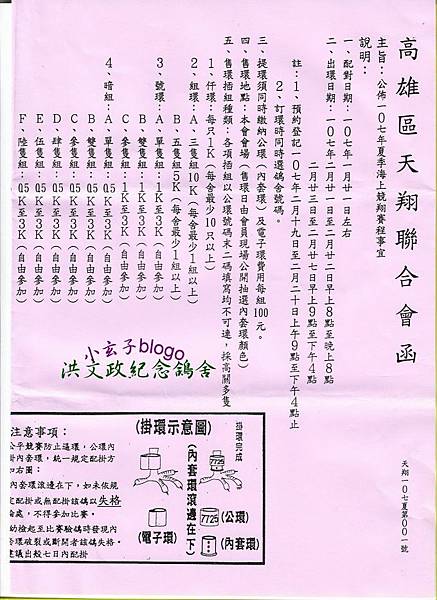 高雄區天翔聯合會函
天翔一0七夏第00一號
主旨：公佈一0七年夏季海上競翔賽程事宜
說明：
一、配對日期：一0七年一月廿一日左右
二、出環日期：一0七年二月廿一日至二月廿二日早上8點至晚上8點
二月廿三日至二月廿七日早上9點至下午4點
註：1、預約登記一0七年二月十九日至二月二十日上午9點至下午4點止
2、訂環時同時選鴿舍號碼。
三、提環須同時繳納公環（內套環）及電子環費用每組100元。
四、售環地點：本會會場（售環日由會員現場公開抽選內套環顏色）
五、售環插組種類：各項插組以公環號碼末二碼填寫均不可連，採高關多隻
1、仟環：每只1K（每舍最少10只以上）
2、組環：A、三隻組10K（每舍最少1組以上）
B、五隻組5K（每舍最少1組以上）
3、號環：A、單隻組：1K至3K（自由參加）
B、雙隻組：1K至3K（自由參加）
C、參隻組：1K至3K（自由參加）
4、暗組：A、單隻組：05K至3K（自由參加）
B、雙隻組：05K至3K（自由參加）
C、參隻組：05K至3K（自由參加）
D、肆隻組：05K至3K（自由參加）
E、伍隻組：05K至3K（自由參加）
F、陸隻組：05K至3K（自由參加）
小玄子blogo
洪文政紀念鴿舍
（掛環示意圖）
掛環完成
（內套環滾邊在下）
7725
7725
（公環）
（電子環）
（內套環）
注意事項：
公平競賽防止過環，公環內
掛內套環，統一規定配掛方
如右圖：
內套環滾邊在下，如未依規
定配掛或無配掛該鴿以失格
論處，不得參加比賽。
助檢起至比賽驗鴿時發現內
套環破裂或斷開者該鴿失格。
建議出殼七日內配掛